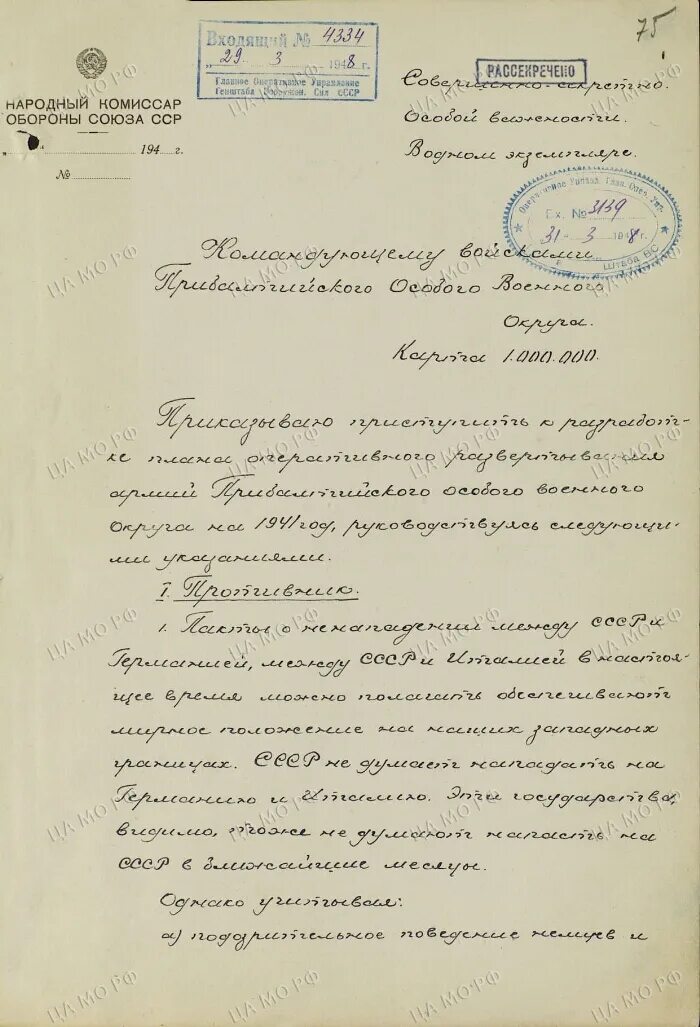 75
Входящий № 4334
„29" 3 1948 г.
Главное Оперативное Управление
Генштаба Вооружен. Сил СССР
РАССЕКРЕЧЕНО
Совершенно секретно.
Особой важности.
В одном экземпляре.
НАРОДНЫЙ КОМИССАР
ОБОРОНЫ СОЮЗА ССР
194 г.
№
Вх. №3139
31-3 1948 г.
штаба ВС
Командующему войсками
Прибалтийского Особого Военного
Округа.
Карта 1.000.000.
Приказываю приступить к разработ-
ке плана оперативного развертывания
армий Прибалтийского особого военного
округа на 1941 год, руководствуясь следующи-
ми указаниями.
I. Противник.
1. Пакты о ненападении между СССР и
Германией, между СССР и Италией в настоя-
щее время можно полагать обеспечивают
мирное положение на наших западных
границах. СССР не думает нападать на
Германию и Италию. Эти государства,
видимо, тоже не думают напасть на
СССР в ближайшие месяцы.
Однако учитывая:
а) подозрительное поведение немцев и
ЦА МО РФ